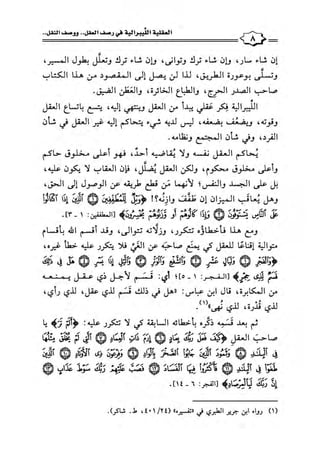 العقلية الليبرالية في رصف العقل.. ووصف النقل..
٨
إن شاء سار، وإن شاء ترك وتوانى، وإن شاء ترك وتعلَّل بطول المسير،
وتسلَّى بوعورة الطريق، لذا لن يصل إلى المقصود من هذا الكتاب
صاحب الصدر الحرج، والطباع الخائرة، والعَطَن الضيق.
الليبرالية فكر عقلي يبدأ من العقل وينتهي إليه، يتسع باتساع العقل
وقوته، ويضعُف بضعفه، ليس لديه شيء يتحاكم إليه غير العقل في شأن
الفرد، وفي شأن المجتمع ونظامه.
يُحاكم العقل نفسه ولا يُقاضيه أحدٌ، فهو أعلى مخلوق حاكم
وأعلى مخلوق محكوم، ولكن العقل يُضلَّل، فإن العقاب لا يكون عليه،
بل على الجسد والنفس؛ لأنهما مَن قطع طريقه عن الوصول إلى الحق،
وهل يُعاقَب الميزان إن طفَّف وازنُه؟! ﴿وَيْلٌ لِّلْمُطَفِّفِينَ ۝ الَّذِينَ إِذَا اكْتَالُوا
عَلَى النَّاسِ يَسْتَوْفُونَ ۝ وَإِذَا كَالُوهُمْ أَو وَّزَنُوهُمْ يُخْسِرُونَ﴾ [المطففين: ١ - ٣].
ومع هذا فأخطاؤه تتكرر، وزلاته تتوالى، وقد أقسم الله بأقسام
متوالية إقناعًا للعقل كي يمنَع صاحبَه عن الغيّ فلا يتكرر عليه خطأ غيره،
﴿وَالْفَجْرِ ۝ وَلَيَالٍ عَشْرٍ ۝ وَالشَّفْعِ وَالْوَتْرِ ۝ وَاللَّيْلِ إِذَا يَسْرِ ۝ هَلْ فِي ذَلِكَ
قَسَمٌ لِّذِي حِجْرٍ﴾ [الفجر: ١ - ٥]؛ أي: قَسَم لأجل ذي عقل يمنعه
من المكابرة، قال ابن عباس: «هل في ذلك قَسَم لذي عقل، لذي رأي،
لذي قُدرة، لذي نُهى»(١).
ثم بعد قسَمِه ذكَره بأخطائه السابقة كي لا تتكرر عليه: ﴿أَلَمْ تَرَ﴾ يا
صاحب العقل ﴿كَيْفَ فَعَلَ رَبُّكَ بِعَادٍ ۝ إِرَمَ ذَاتِ الْعِمَادِ ۝ الَّتِي لَمْ يُخْلَقْ مِثْلُهَا
فِي الْبِلَادِ ۝ وَثَمُودَ الَّذِينَ جَابُوا الصَّخْرَ بِالْوَادِ ۝ وَفِرْعَوْنَ ذِي الْأَوْتَادِ ۝ الَّذِينَ
طَغَوْا فِي الْبِلَادِ ۝ فَأَكْثَرُوا فِيهَا الْفَسَادَ ۝ فَصَبَّ عَلَيْهِمْ رَبُّكَ سَوْطَ عَذَابٍ ۝
إِنَّ رَبَّكَ لَبِالْمِرْصَادِ﴾ [الفجر: ٦ - ١٤].
(١) رواه ابن جرير الطبري في «تفسيره» (٤٠١/٢٤، ط. شاكر).